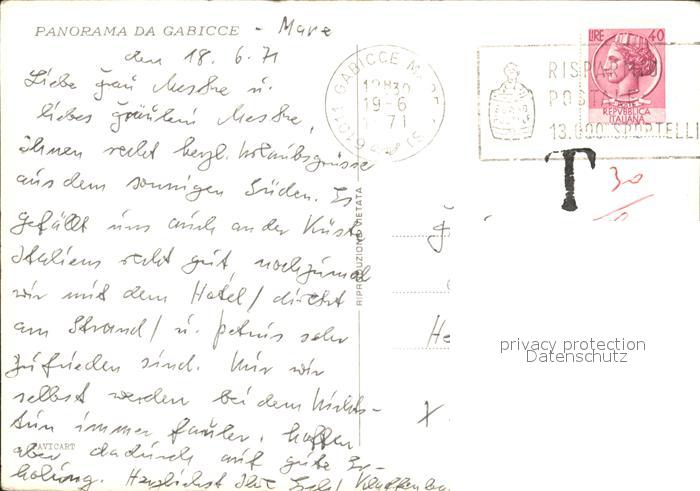 PANORAMA DA GABICCE - Mare
den 18. 6. 71
Liebe Frau Meske u.
liebes Fräulein Meske,
Ihnen recht herzl. Urlaubsgrüsse
aus dem sonnigen Süden. Es
gefällt uns auch an der Küste
Italiens recht gut, nochzumal
wir mit dem Hotel / direkt
am Strand / u. Petrus sehr
zufrieden sind. Nur wir
selbst werden bei dem Nichts-
tun immer fauler, hoffen
aber dadurch auf gute Er-
holung. Herzlichst Ihre
NAVICART
RIPRODUZIONE VIETATA
61011 GABICCE MARE
19-6
71
(PS)
RISPARMIO
POSTALE
13.000 SPORTELLI
LIRE 40
POSTE
REPVBBLICA
ITALIANA
T
30
He
privacy protection
Datenschutz